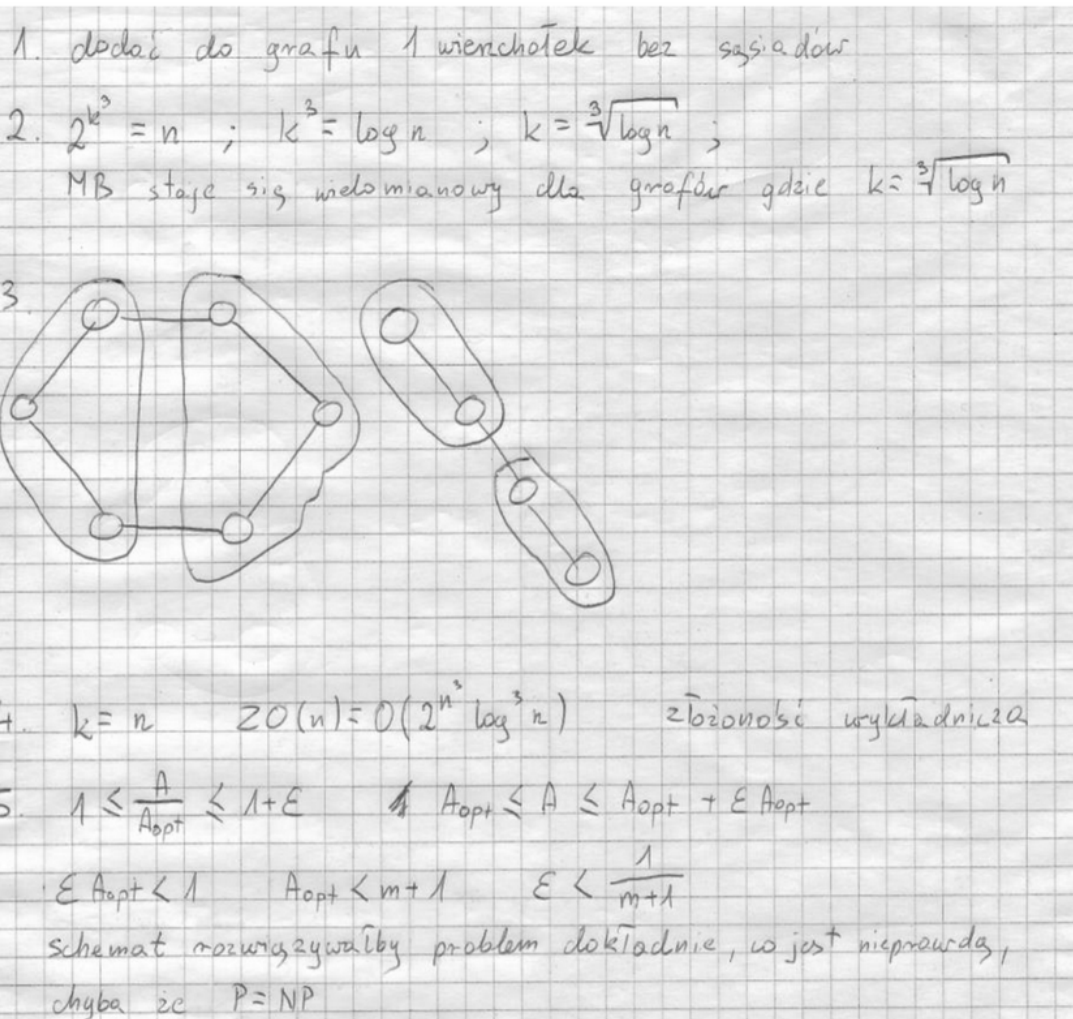 1. dodać do grafu 1 wierzchołek bez sąsiadów
2. 2^{k^3} = n ; k^3 = log n ; k = ∛(log n) ;
MB staje się wielomianowy dla grafów gdzie k = ∛(log n)
3
4. k = n ZO(n) = O(2^{n^3} log^3 n) złożoność wykładnicza
5. 1 ≤ A/A_opt ≤ 1+ε A_opt ≤ A ≤ A_opt + ε A_opt
ε A_opt < 1 A_opt < m+1 ε < 1/(m+1)
schemat rozwiązywałby problem dokładnie, co jest nieprawdą,
chyba że P = NP